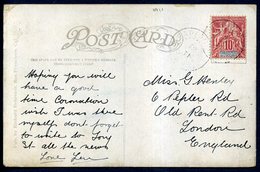 POST CARD
Hoping you will
have a good
time Coronation
wish I was there
myself dont forget
to write to
St. all the news
Love
Miss G Henley
6 Pepler Rd
Old Kent Rd
London
England
10